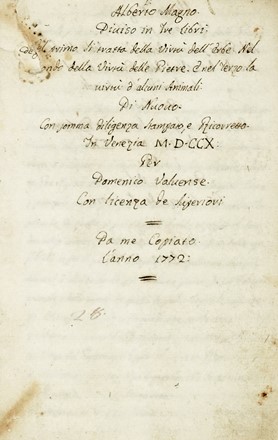 Alberto Magno.
Diviso in tre libri:
Nel primo si tratta della Virtù dell'Erbe. Nel
ondo della Virtù delle Pietre. e nel terzo la
virtù d'alcuni Animali.
Di Nuovo.
Con somma diligenza stampato, e Ricorretto.
In Venezia M.D.CCX.
Per
Domenico Valuense.
Con licenza de Superiori
Da me Copiato.
L'anno 1772:
28.